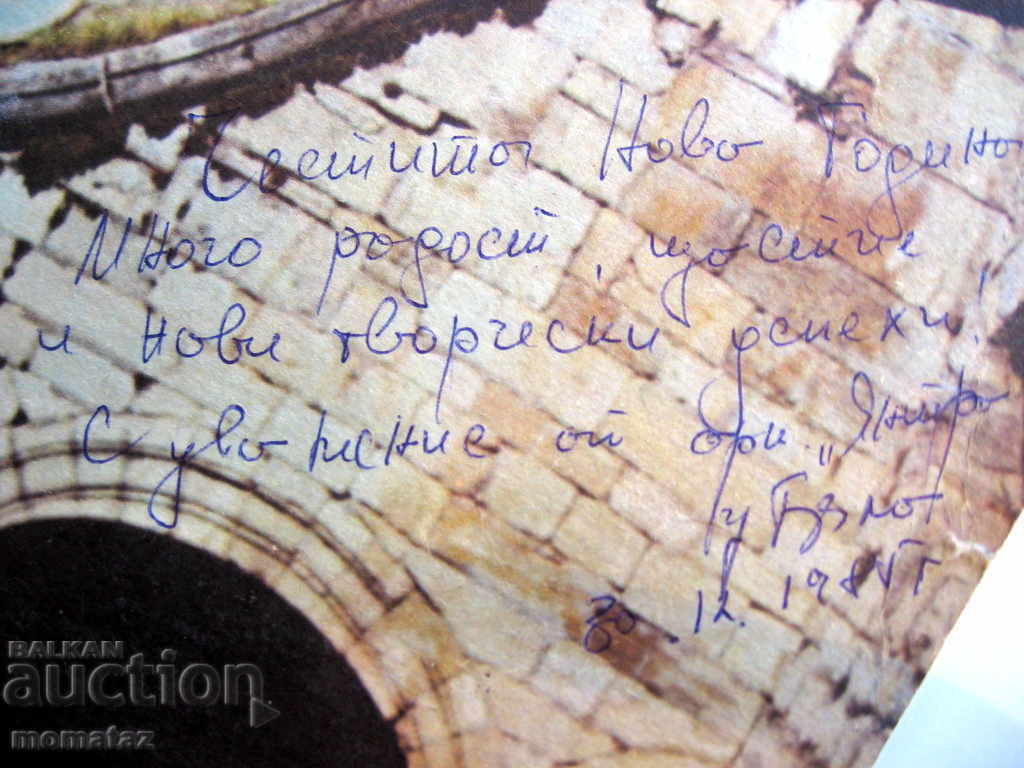 Честита Нова Година
Много радост, щастие
и нови творчески успехи!
С уважение от орк. „Янтра
гр Бяла
30.12. г
BALKAN
auction
momataz